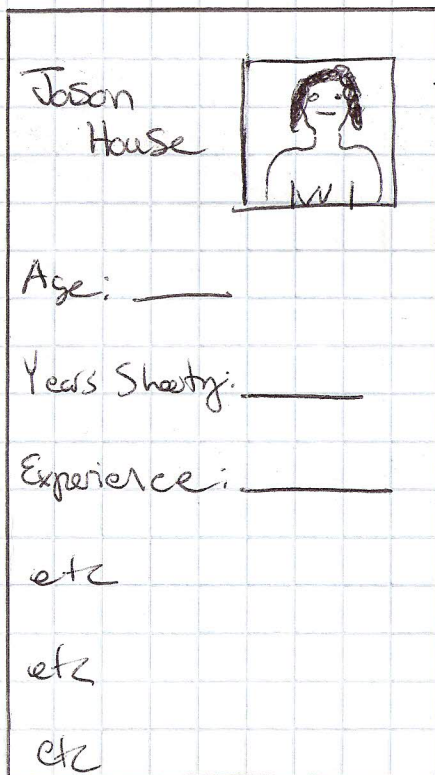 Jason
House
Age:
Years Shooting:
Experience:
etc
etc
etc